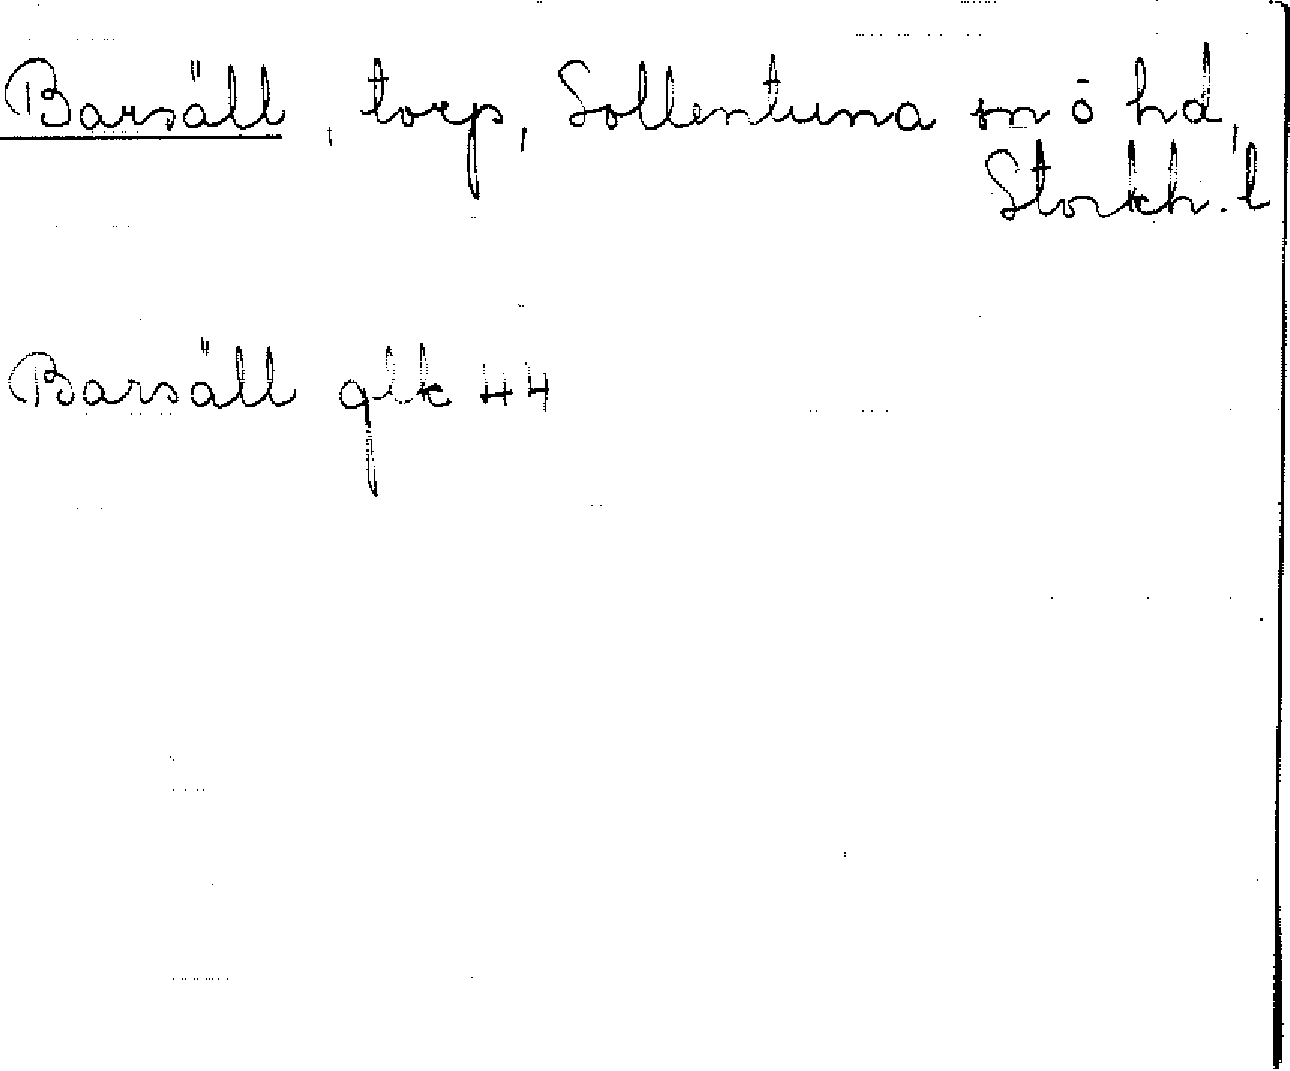 Barsäll, torp, Sollentuna sn ō hd,
Stockh. l
Barsäll glk 44